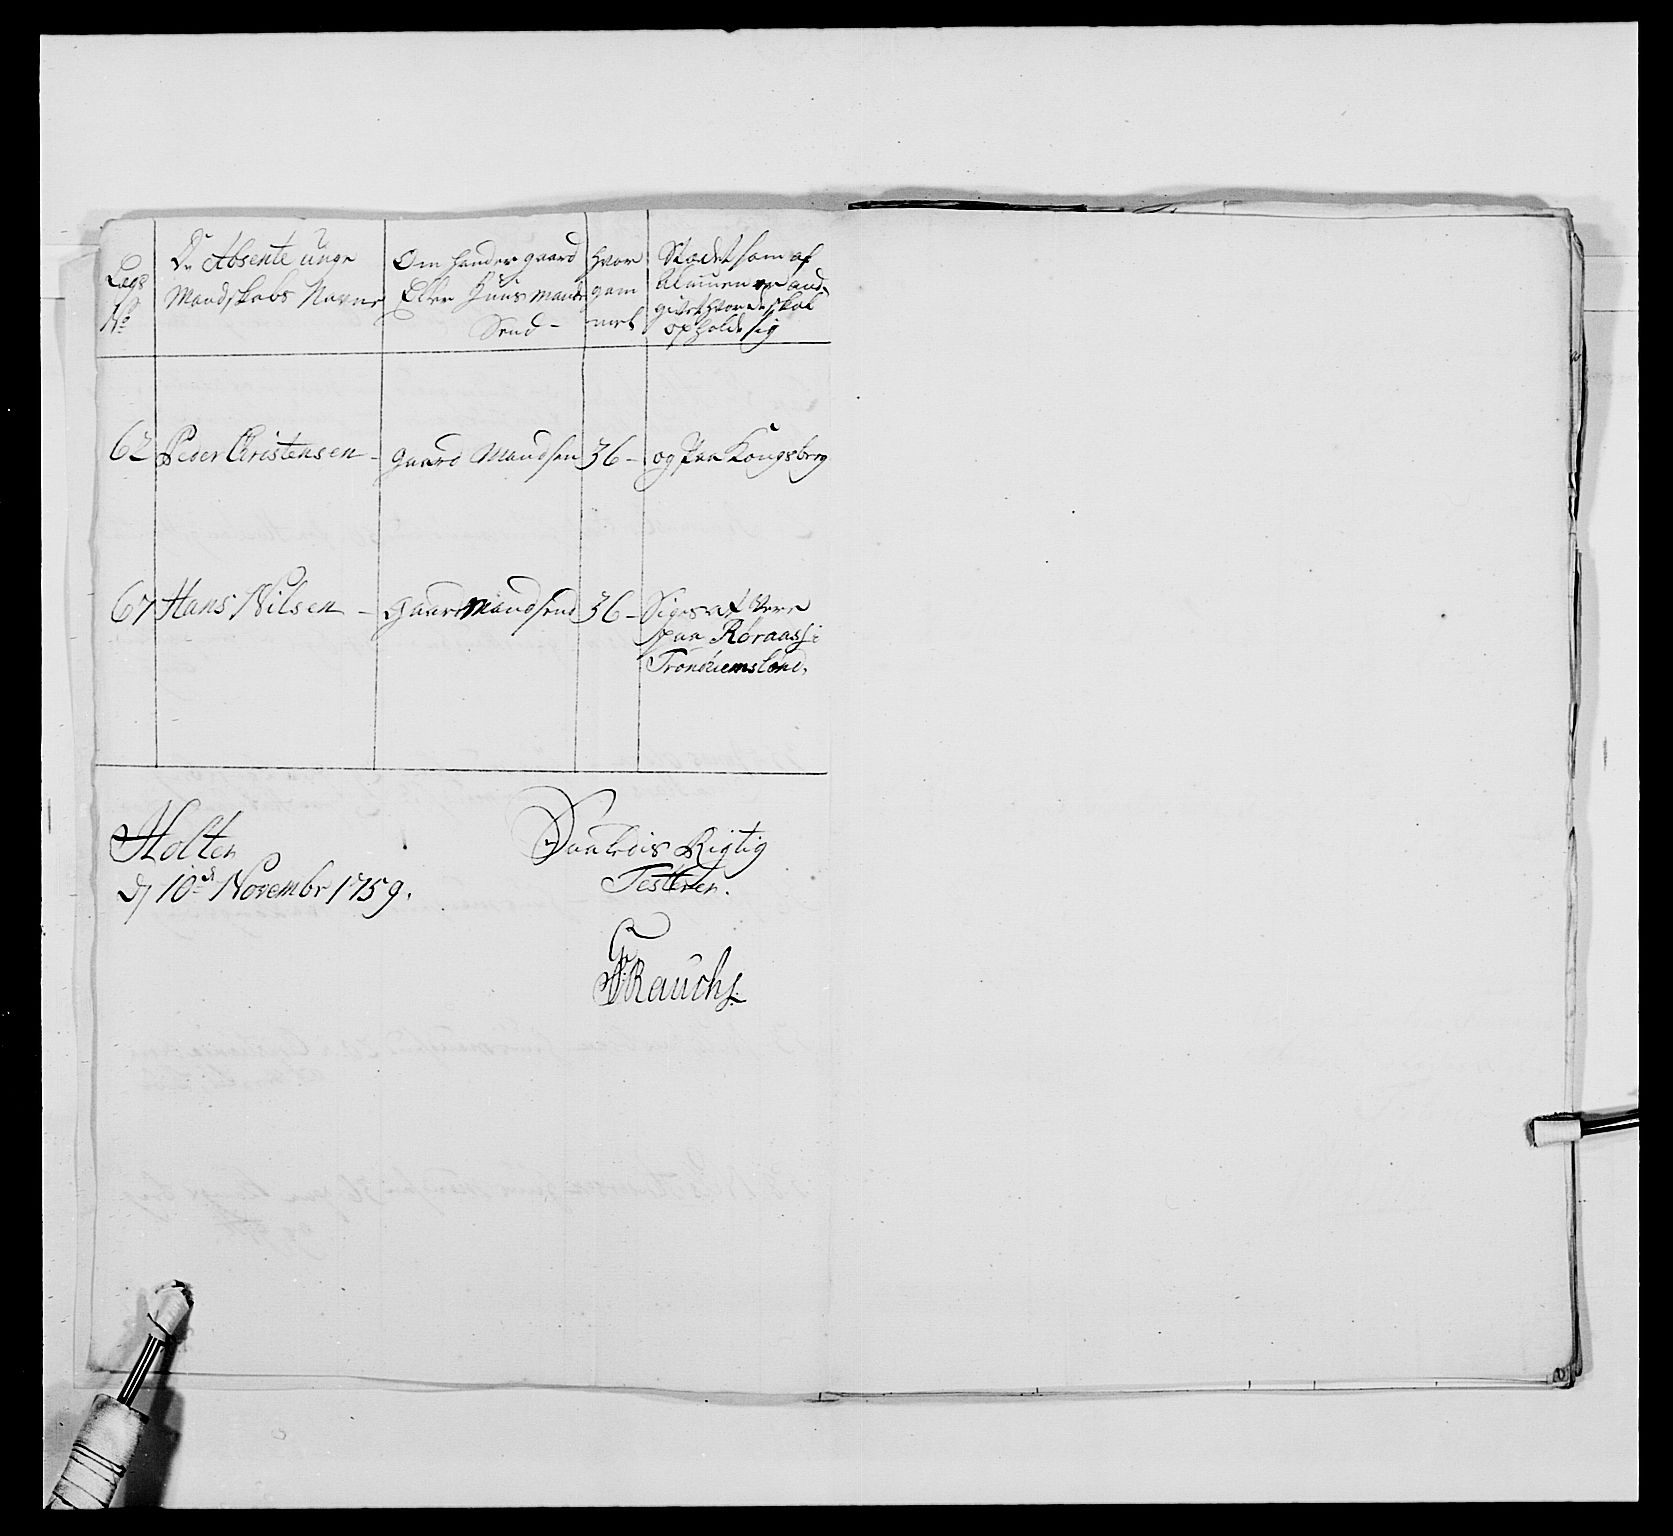 Legs No
De Absente unge
Mandskabs Navne
Om hand er gaard
Eller Huusmands
Send -
Hvor
gam
mel
Stædet som af
Almuen er and-
givet hvor de skal
opholde sig
62 Peder Christensen - gaard Mandsen 36 - og paa Kongsberg
67 Hans Nilsen - gaard Mandsend 36 - Siges at Være
paa Røraas i
Trondhiemsland.
Holten
d 10de Novembr 1759.
Saaledis Rigtig
Testerer.
Rauch